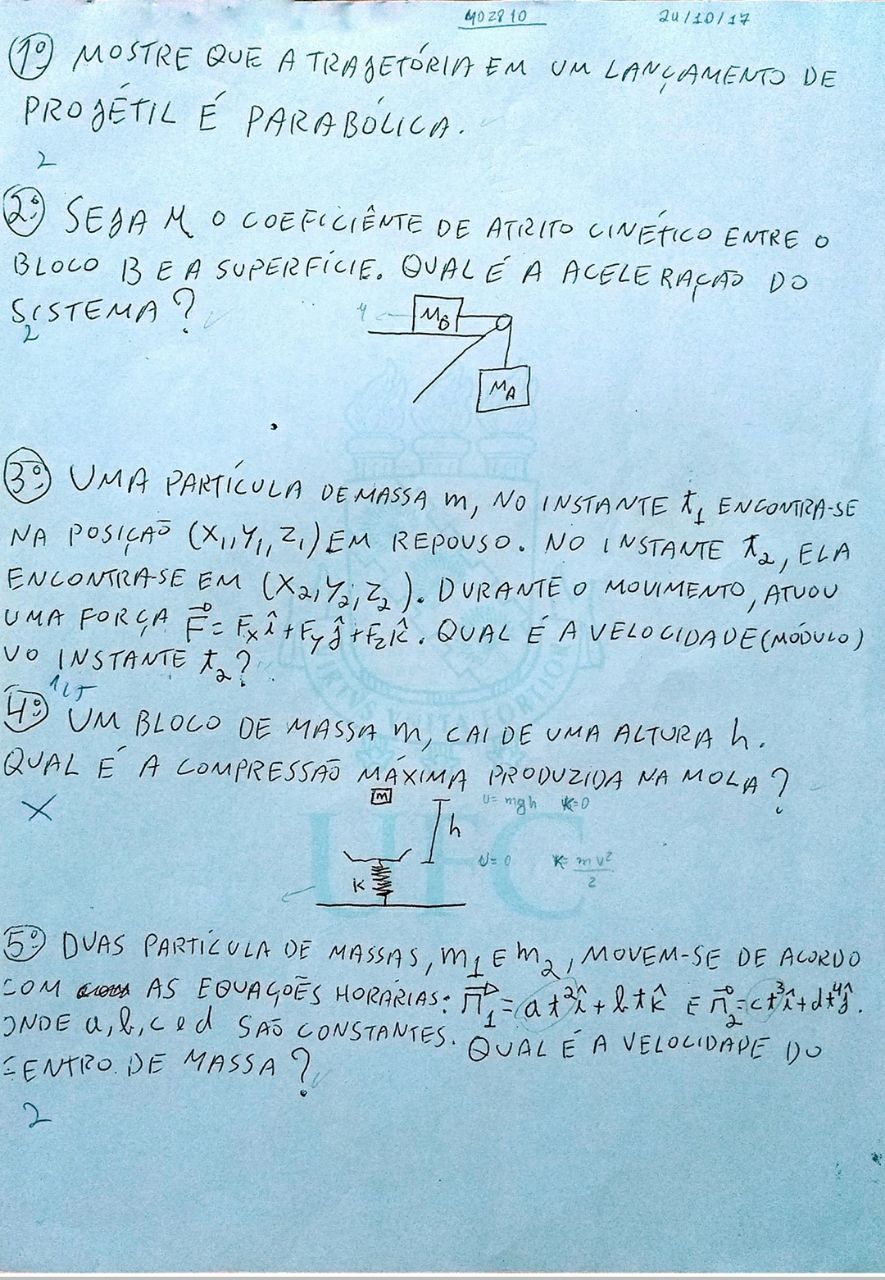 402810 24/10/17
1º MOSTRE QUE A TRAJETÓRIA EM UM LANÇAMENTO DE
PROJÉTIL É PARABÓLICA.
2
2º SEJA M O COEFICIÊNTE DE ATRITO CINÉTICO ENTRE O
BLOCO B E A SUPERFÍCIE. QUAL É A ACELERAÇÃO DO
SISTEMA?
2
MB
MA
3º UMA PARTÍCULA DE MASSA m, NO INSTANTE t1 ENCONTRA-SE
NA POSIÇÃO (X1, Y1, Z1) EM REPOUSO. NO INSTANTE t2, ELA
ENCONTRA-SE EM (X2, Y2, Z2). DURANTE O MOVIMENTO, ATUOU
UMA FORÇA F⃗ = Fxî + Fyĵ + Fzk̂. QUAL É A VELOCIDADE (MÓDULO)
NO INSTANTE t2?
4º UM BLOCO DE MASSA m, CAI DE UMA ALTURA h.
QUAL É A COMPRESSÃO MÁXIMA PRODUZIDA NA MOLA?
X
m U= mgh K=0
h
K U=0 K= mv²/2
UFC
5º DUAS PARTÍCULA DE MASSAS, m1 E m2, MOVEM-SE DE ACORDO
COM AS EQUAÇÕES HORÁRIAS: r⃗1 = at²î + btk̂ E r⃗2 = ct³î + dt⁴ĵ.
ONDE a, b, c e d SÃO CONSTANTES. QUAL É A VELOCIDADE DO
CENTRO DE MASSA?
2